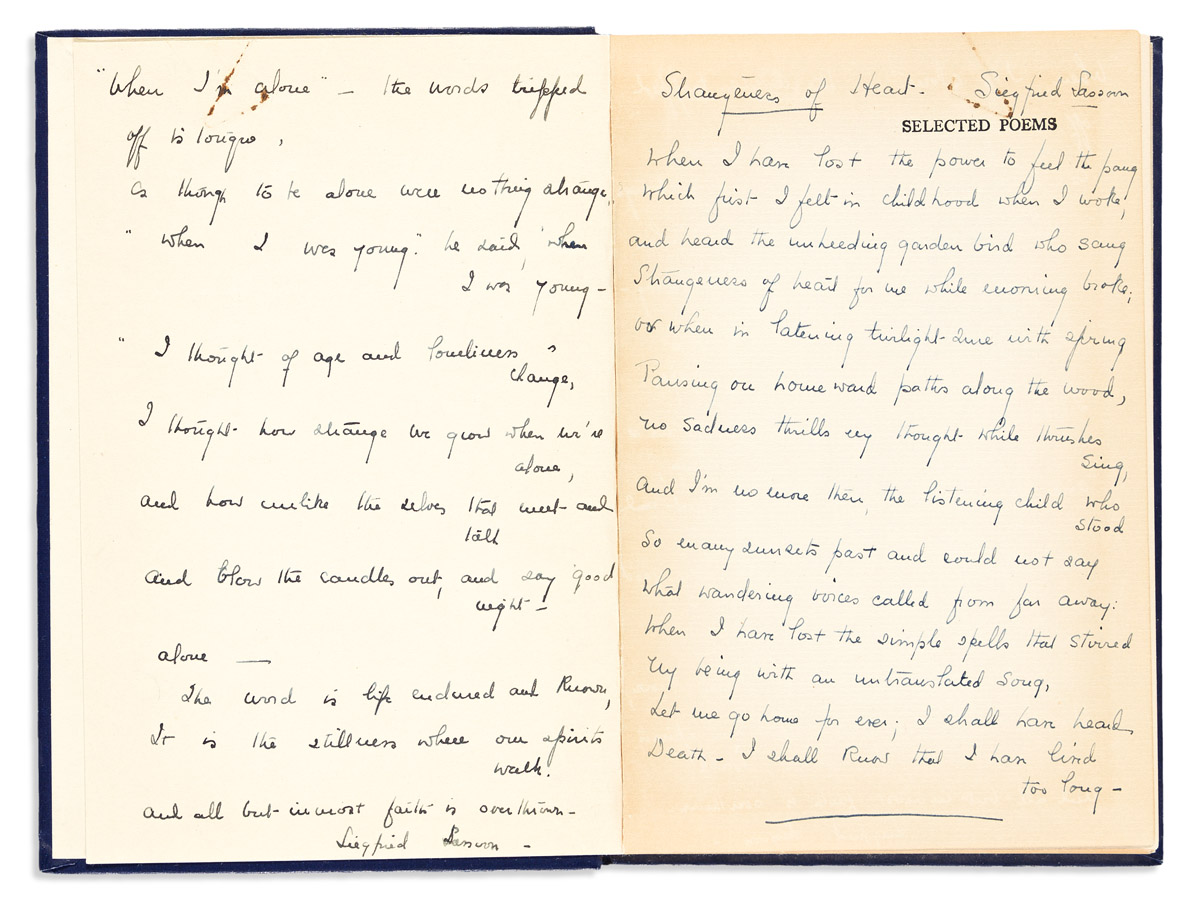 "When I'm alone" — the words tripped
off his tongue,
as though to be alone were nothing strange.
"When I was young," he said, 'when
I was young —
"I thought of age and loneliness &
change,
I thought how strange we grow when we're
alone,
and how unlike the selves that meet and
talk
and blow the candles out, and say 'good
night —
alone —
The word is life endured and known,
It is the stillness where our spirits
walk.
and all but inmost faith is overthrown —
Siegfried Sassoon —
Strangeness of Heart. Siegfried Sassoon
SELECTED POEMS
When I have lost the power to feel the pang
Which first I felt in childhood when I woke,
and heard the unheeding garden bird who sang
Strangeness of heart for me while morning broke;
or when in latening twilight sure with spring
Pausing on homeward paths along the wood,
no sadness thrills my thought while thrushes
sing,
and I'm no more then, the listening child who
stood
So many sunsets past and could not say
What wandering voices called from far away:
When I have lost the simple spells that stirred
My being with an untranslated song,
Let me go home for ever; I shall have heard
Death — I shall know that I have lived
too long —